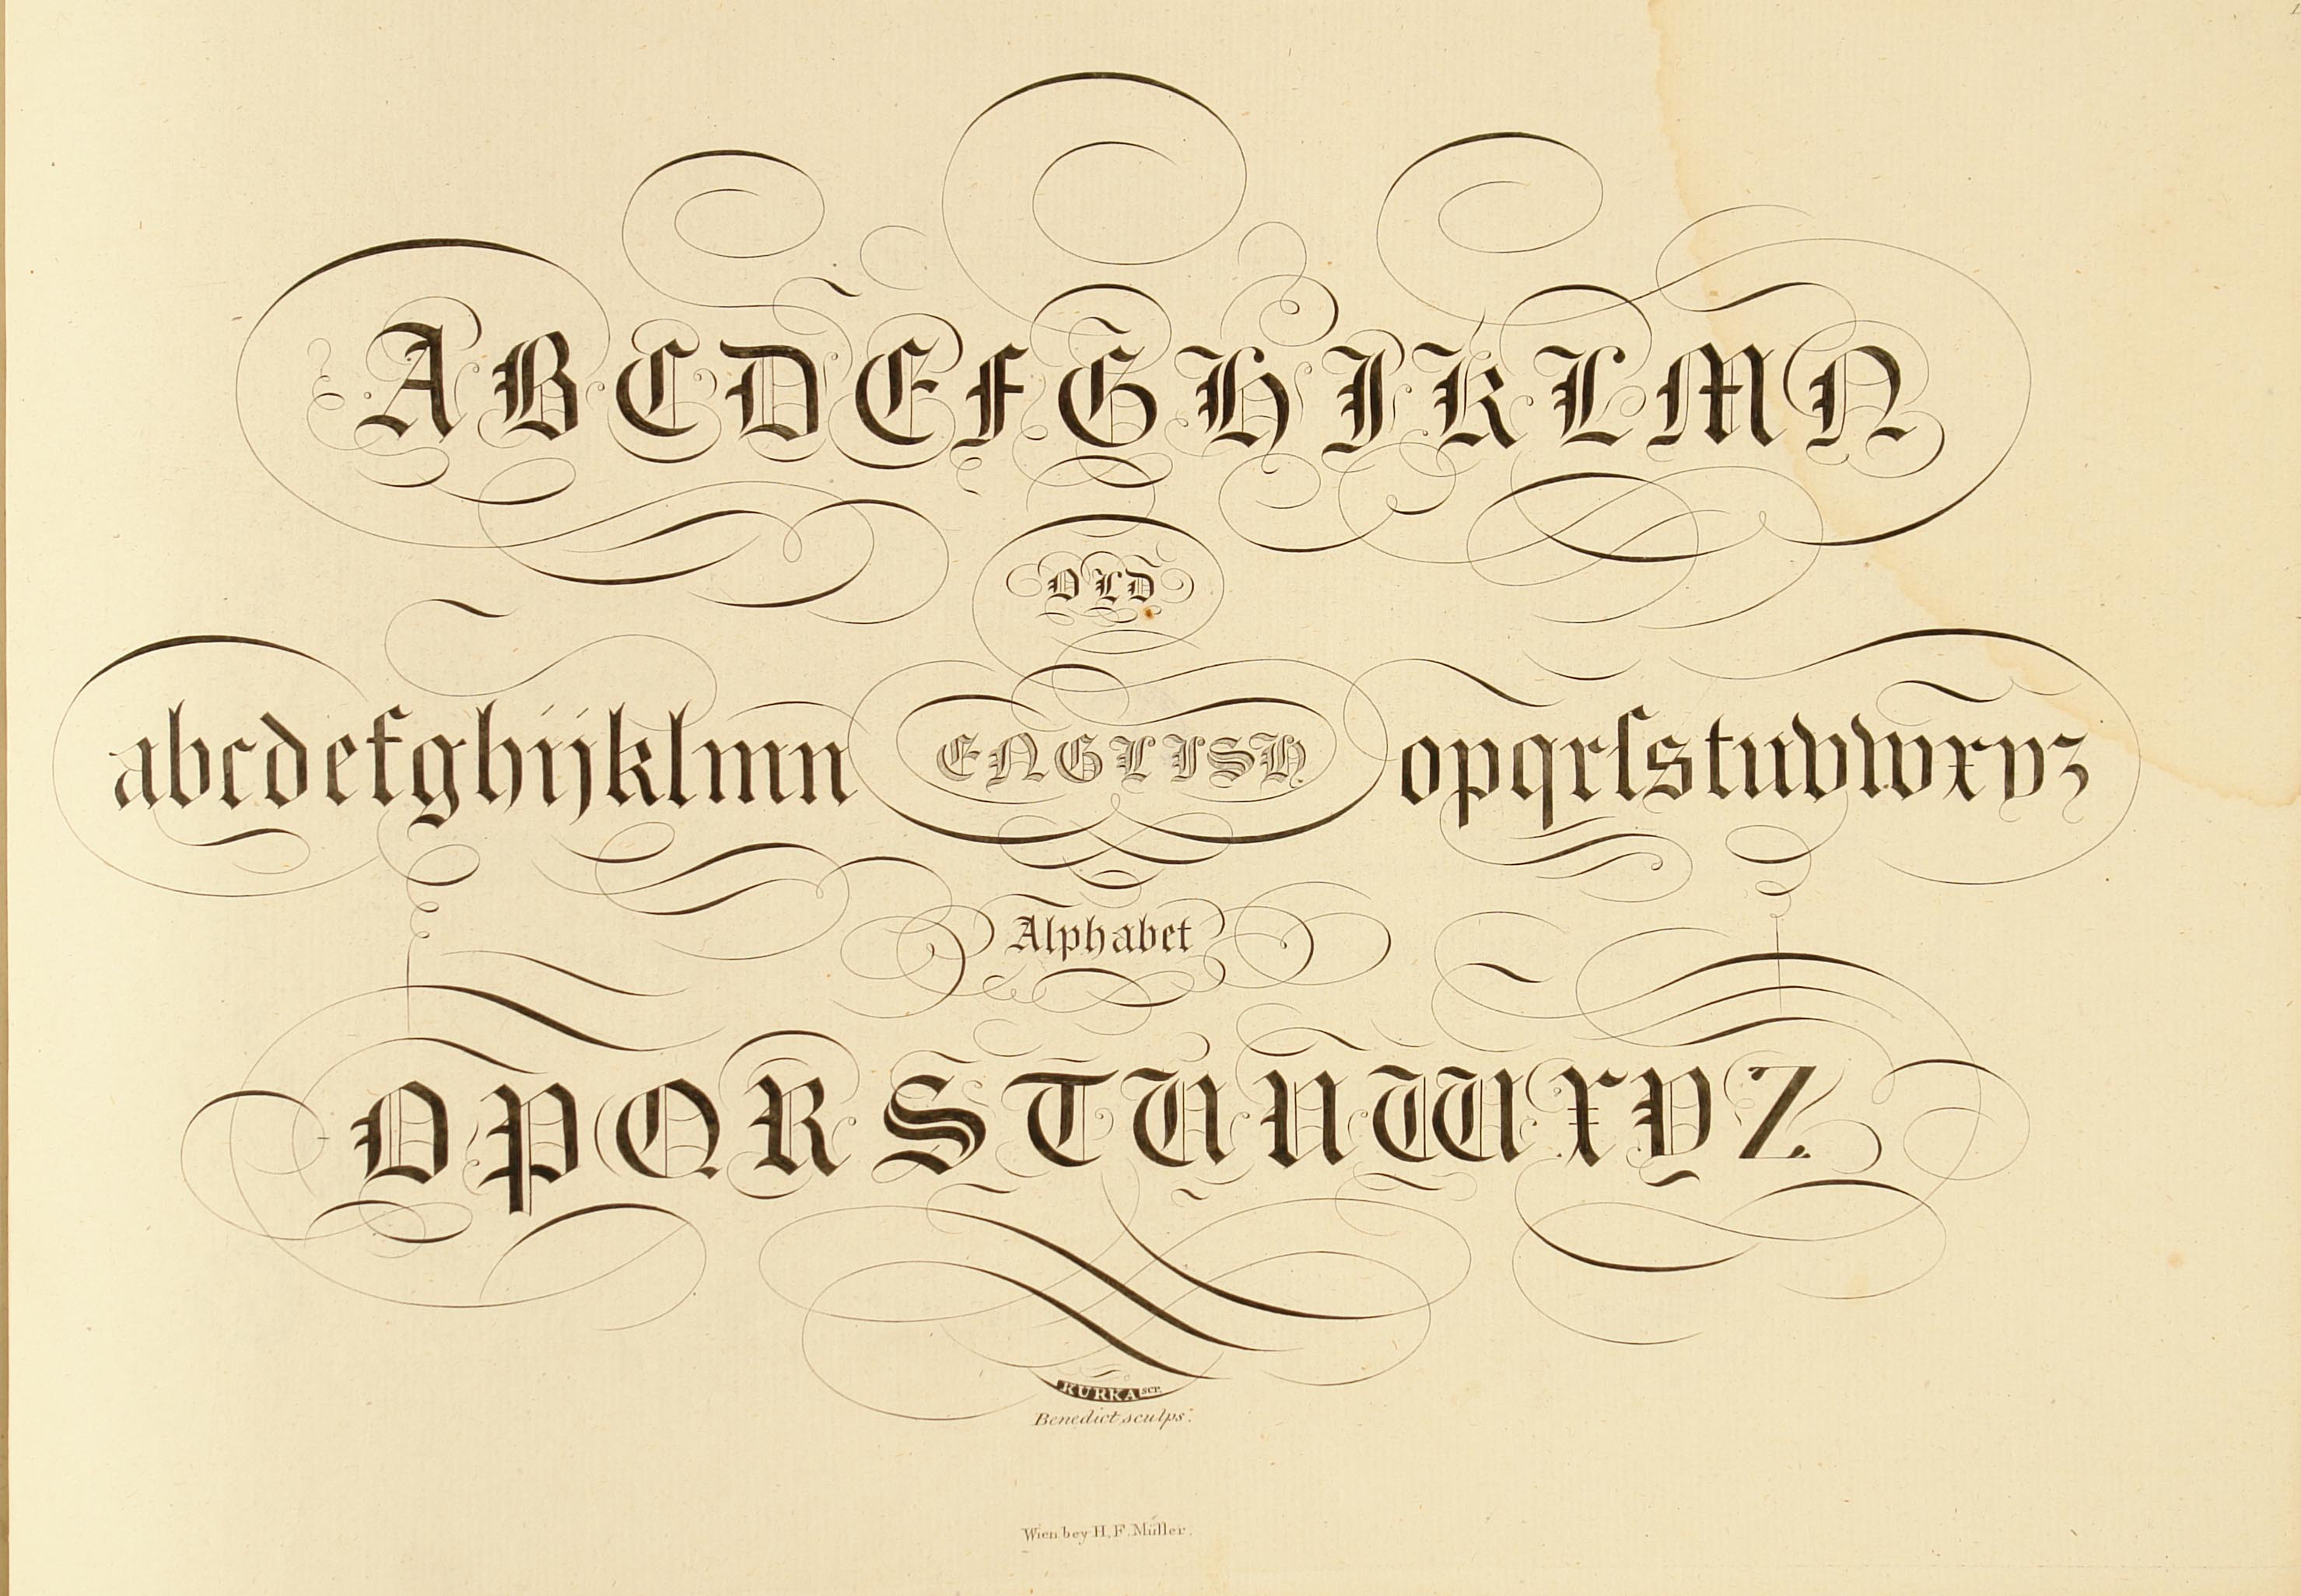 A B C D E F G H I K L M N
OLD
a b c d e f g h i j k l m n
ENGLISH
o p q r ſ s t u v w x y z
Alphabet
O P Q R S T U V W X Y Z
KURKA SCP.
Benedict sculps:
Wien bey H. F. Müller.